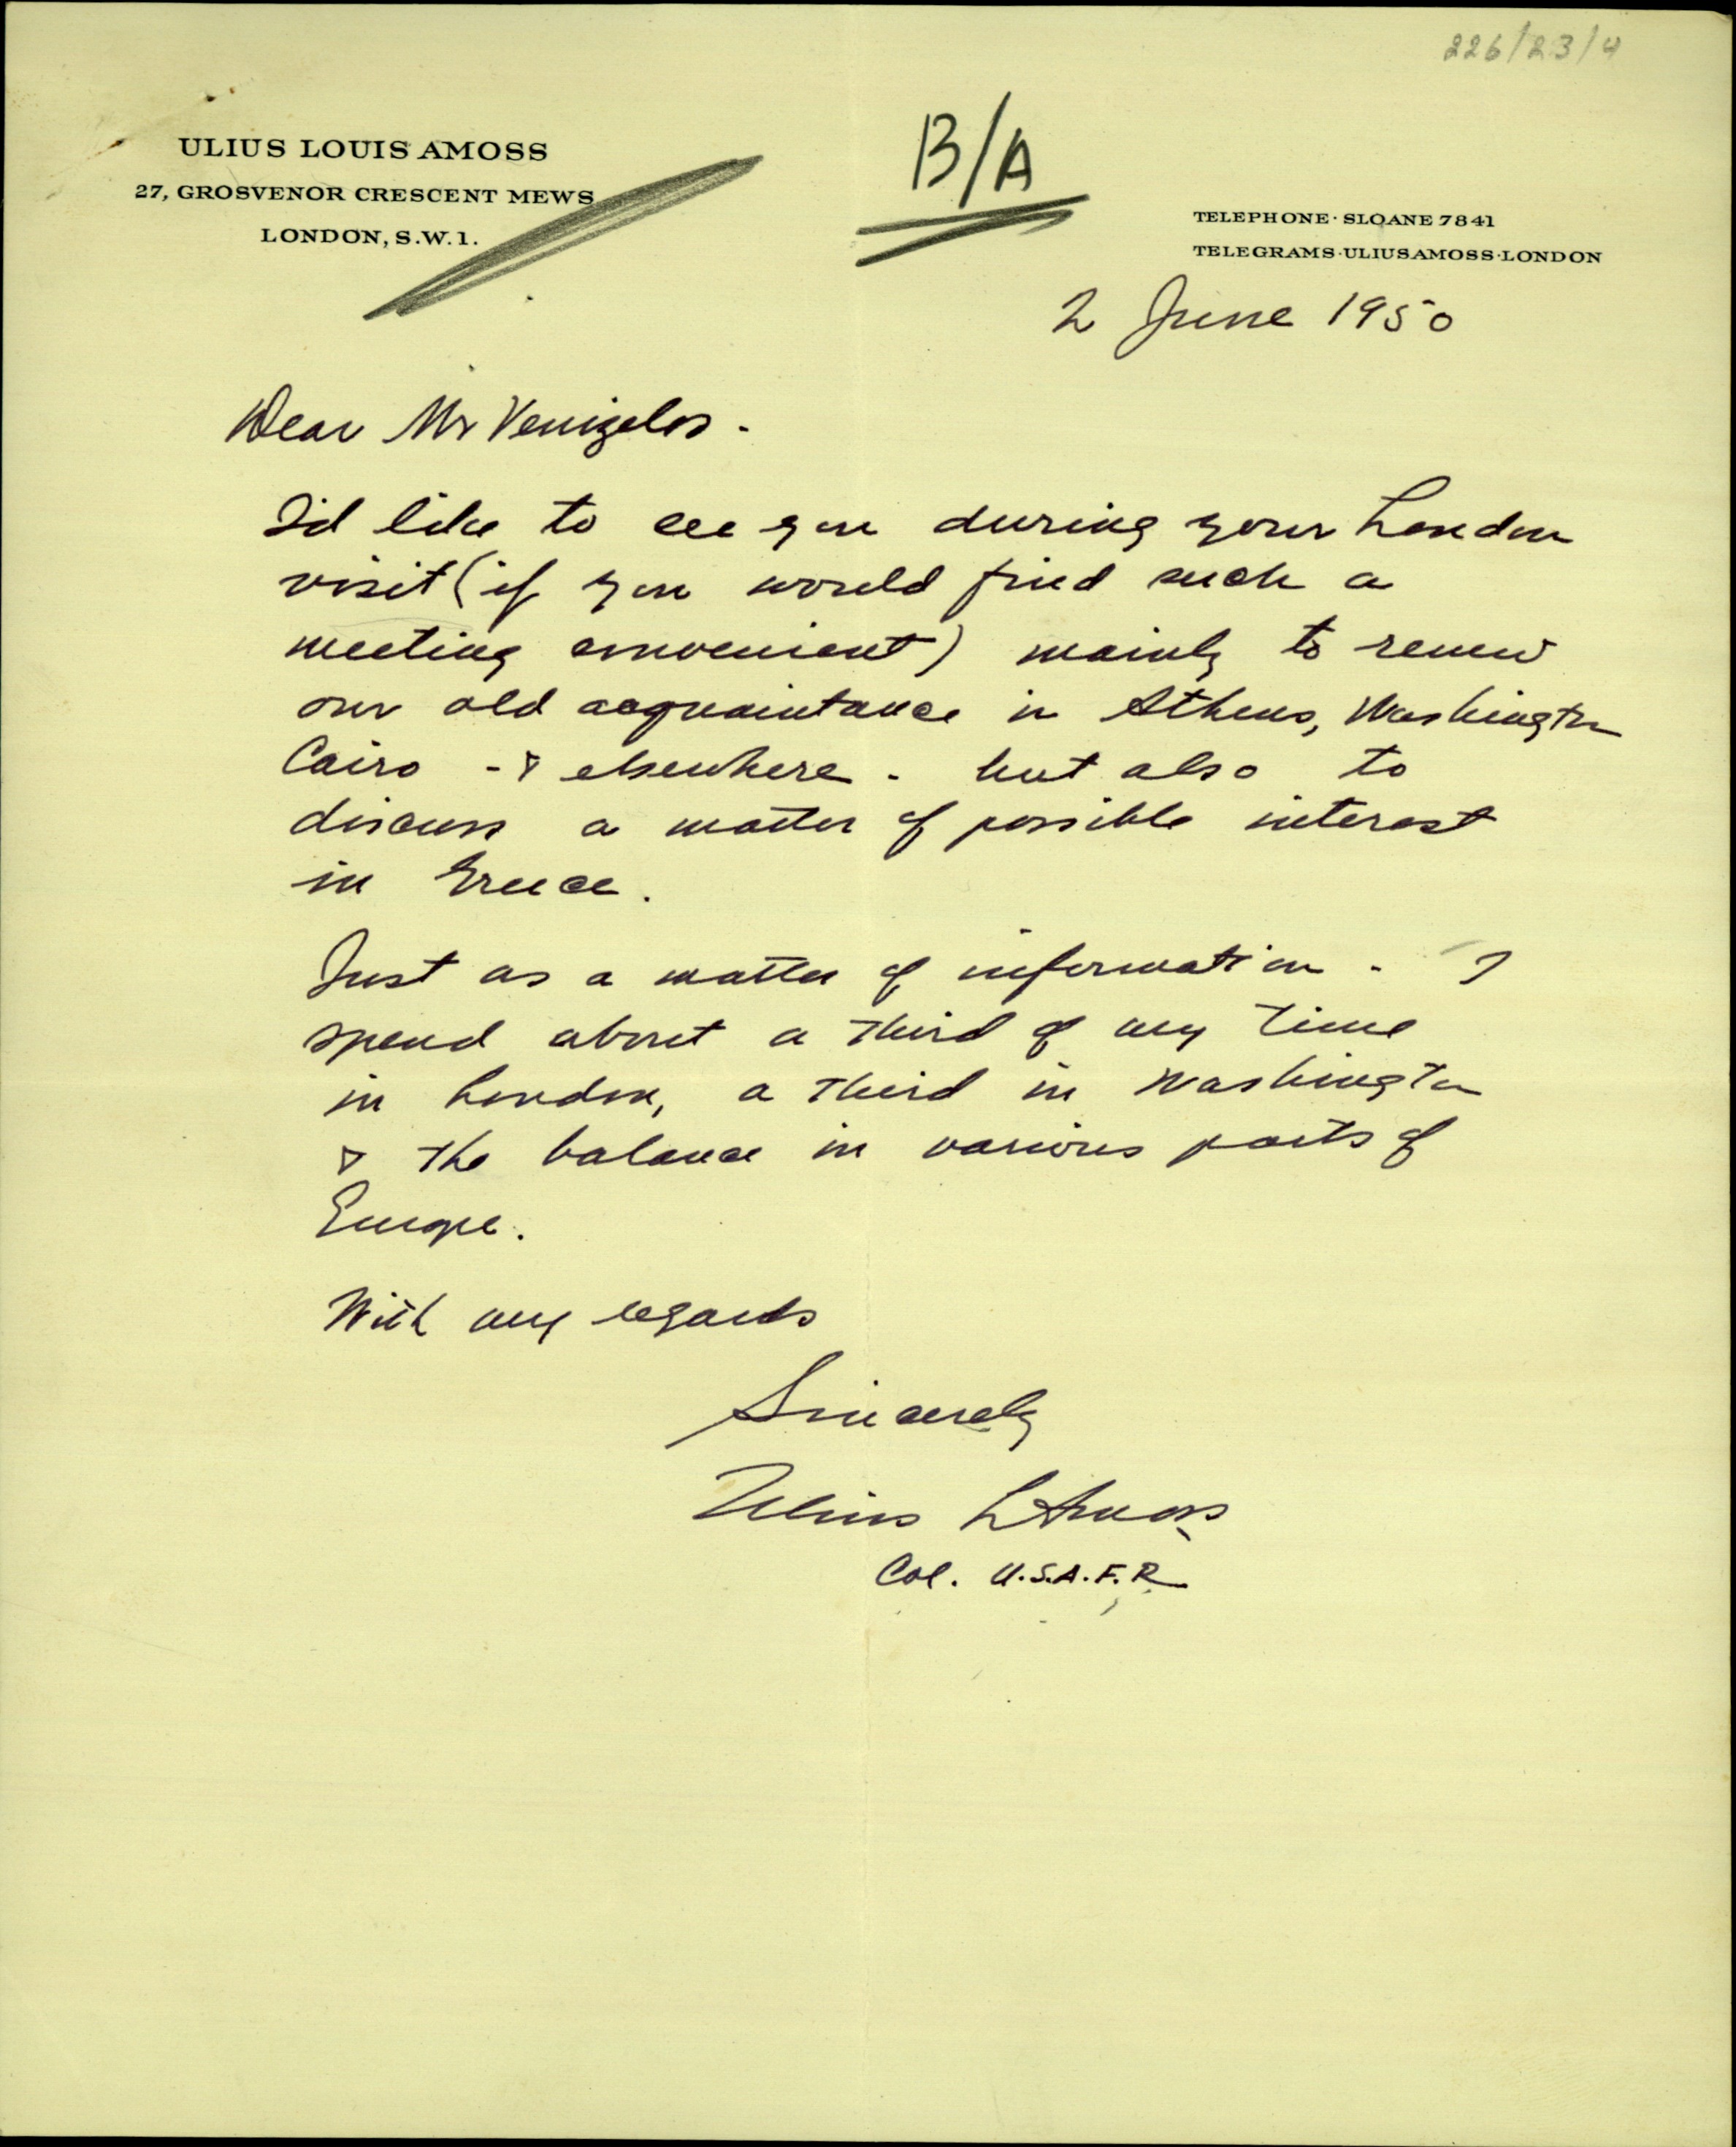 226/23/4
ULIUS LOUIS AMOSS
27, GROSVENOR CRESCENT MEWS
LONDON, S.W.1.
B/A
TELEPHONE · SLOANE 7841
TELEGRAMS · ULIUSAMOSS · LONDON
2 June 1950
Dear Mr Venizelos -
I'd like to see you during your London
visit (if you would find such a
meeting convenient) mainly to renew
our old acquaintance in Athens, Washington
Cairo - & elsewhere - but also to
discuss a matter of possible interest
in Greece.
Just as a matter of information - I
spend about a third of my time
in London, a third in Washington
& the balance in various parts of
Europe.
With my regards
Sincerely
Ulius L Amoss
Col. U.S.A.F.R.